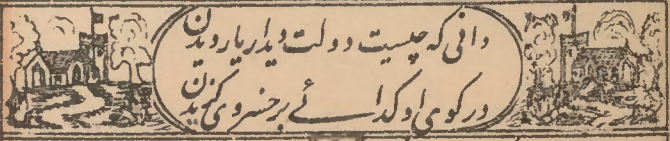 دانی که چیست دولت دیدار یار دیدن
در کوی او گدائے بر خسروی گزیدن